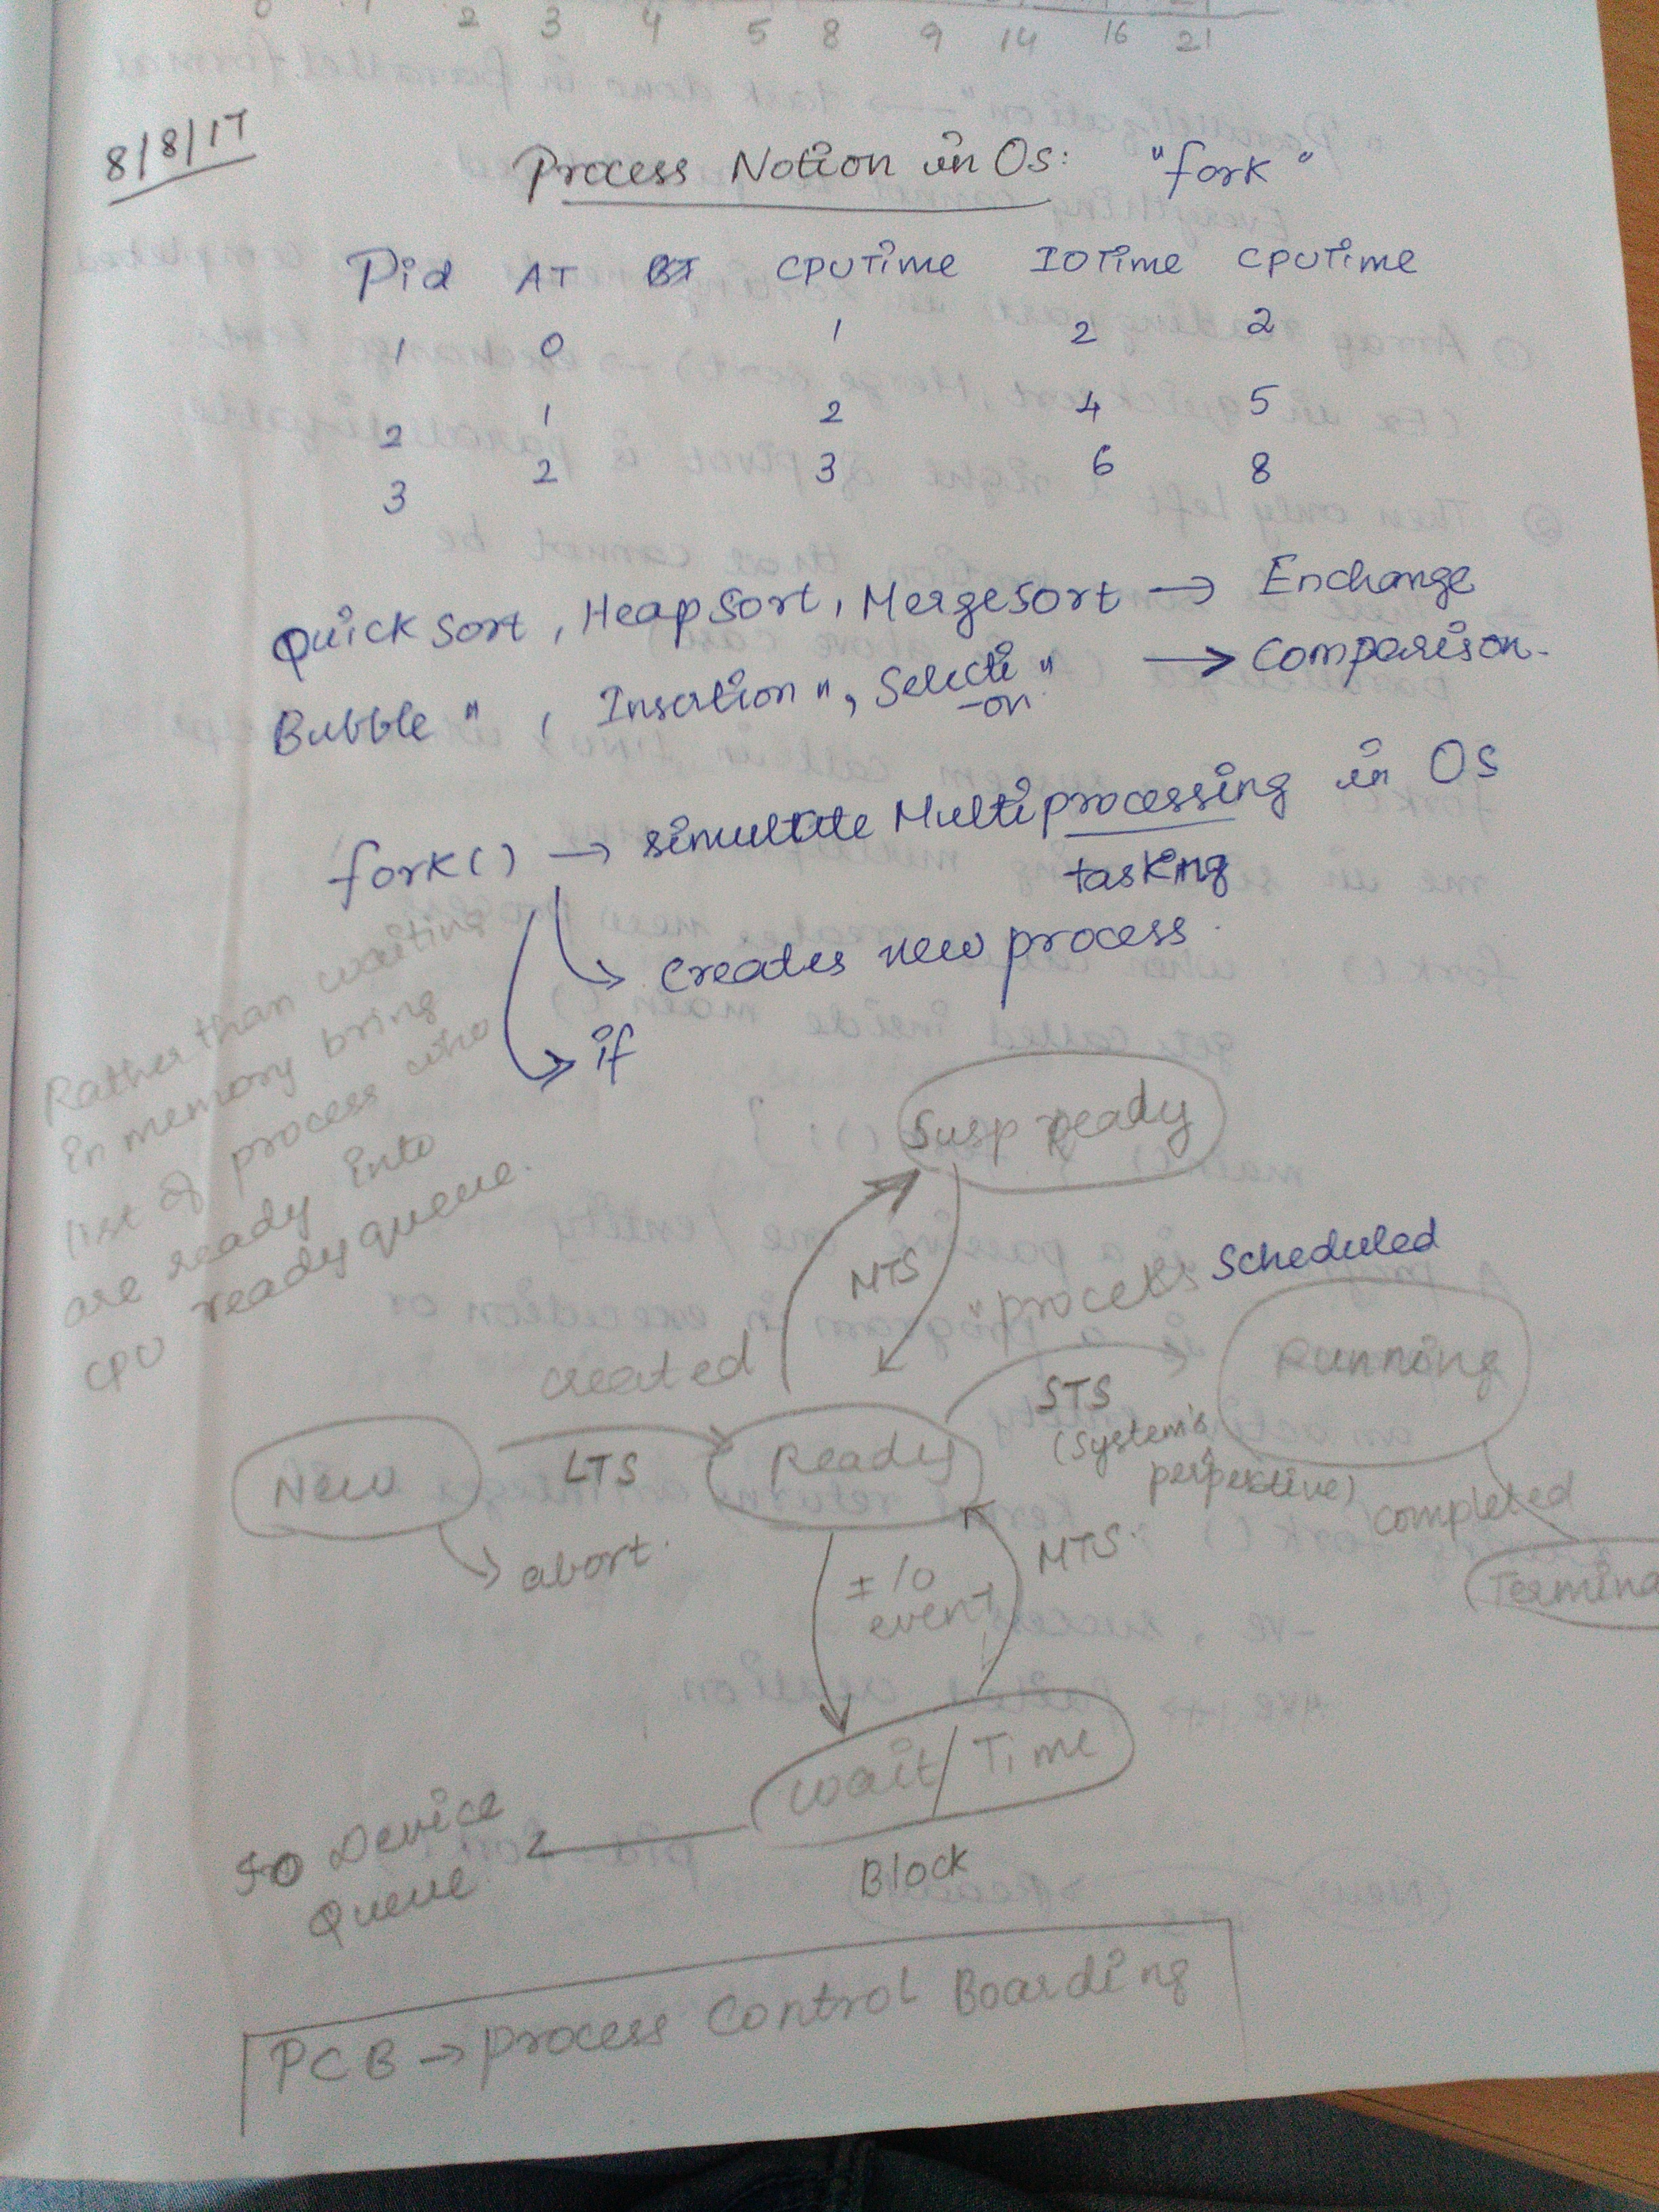 2 3 4 5 8 9 14 16 21
8/8/17
Process Notion in OS: "fork"
Pid AT BT CPUTime IOTime CPUTime
1 0 1 2 2
2 1 2 4 5
3 2 3 6 8
Quick Sort, Heap Sort, Merge Sort → Enchange
Bubble ", Insertion ", Selecti "
-on
→ Comparison.
fork() → simultate Multiprocessing in OS
tasking
creates new process.
if
Rather than waiting
in memory bring
list of process who
are ready into
CPU ready queue.
Susp ready
MTS
"process scheduled
created
STS
(System's
perpektive)
Running
New
LTS
Ready
completed
abort.
I/O
event
MTS.
Termina
Wait/Time
Block
IO Device
Queue
PCB → Process Control Boarding